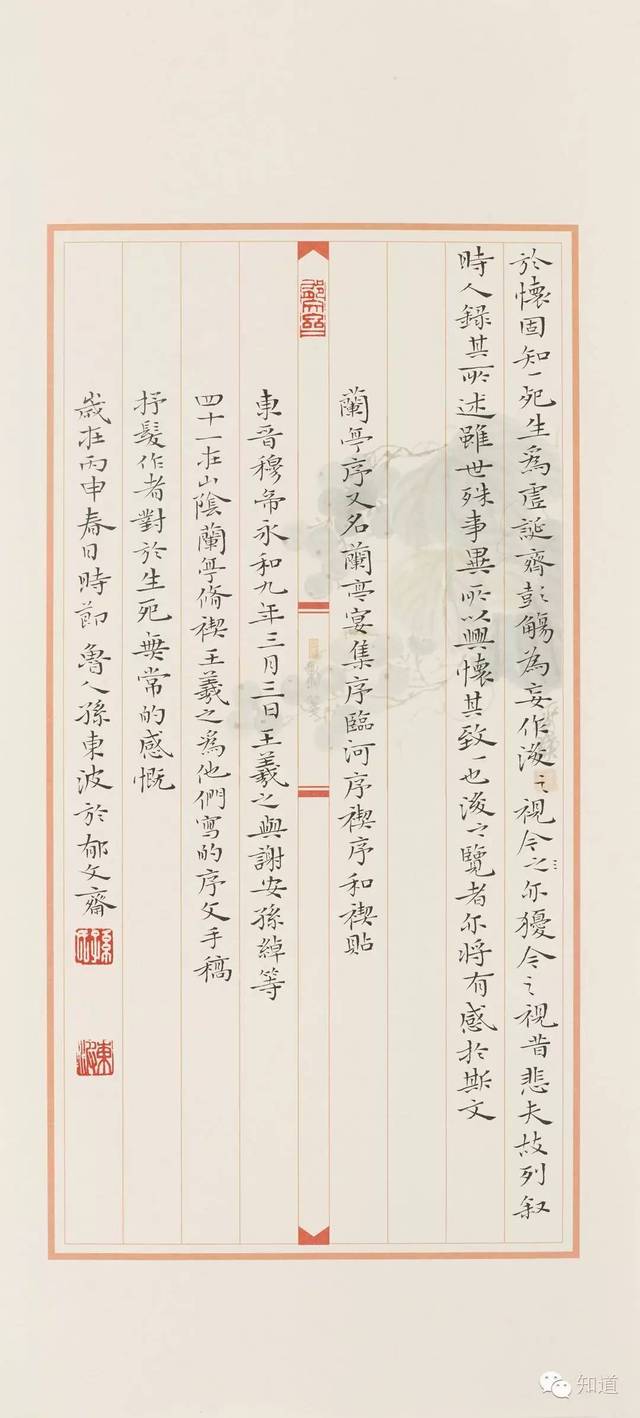 於懷固知一死生爲虛誕齊彭殤為妄作後之視今之亦猶今之視昔悲夫故列叙
時人録其所述雖世殊事異所以興懷其致一也後之覽者亦將有感於斯文
蘭亭序又名蘭亭宴集序臨河序禊序和禊貼
東晉穆帝永和九年三月三日王羲之與謝安孫綽等
四十一在山陰蘭亭脩禊王羲之爲他們寫的序文手稿
抒髮作者對於生死無常的感慨
歲在丙申春日時節魯人孫東波於郁文齋
知道